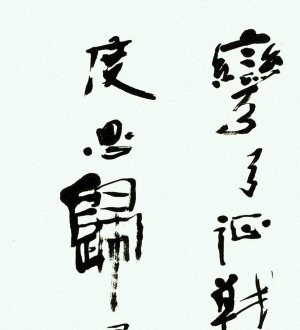 彎弓征戰
度思歸